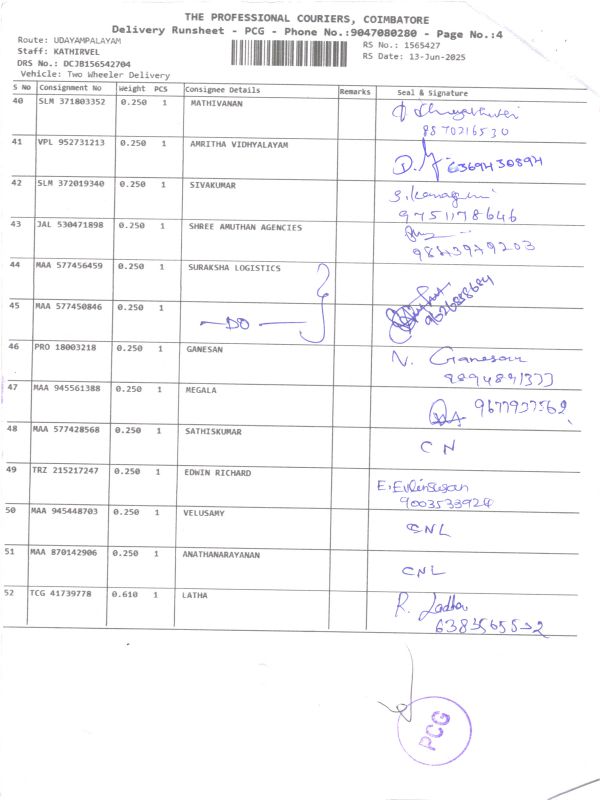 THE PROFESSIONAL COURIERS, COIMBATORE
Delivery Runsheet - PCG - Phone No.:9047080280 - Page No.:4
Route: UDAYAMPALAYAM RS No.: 1565427
Staff: KATHIRVEL RS Date: 13-Jun-2025
DRS No.: DCJB156542704
Vehicle: Two Wheeler Delivery
S No Consignment No Weight PCS Consignee Details Remarks Seal & Signature
40 SLM 371803352 0.250 1 MATHIVANAN
8870216530
41 VPL 952731213 0.250 1 AMRITHA VIDHYALAYAM
6369430894
42 SLM 372019340 0.250 1 SIVAKUMAR
9751178646
43 JAL 530471898 0.250 1 SHREE AMUTHAN AGENCIES
44 MAA 577456459 0.250 1 SURAKSHA LOGISTICS
45 MAA 577450846 0.250 1 —DO—
46 PRO 18003218 0.250 1 GANESAN
N. Ganesan
47 MAA 945561388 0.250 1 MEGALA
48 MAA 577428568 0.250 1 SATHISKUMAR
CN
49 TRZ 215217247 0.250 1 EDWIN RICHARD
9003533924
50 MAA 945448703 0.250 1 VELUSAMY
CNL
51 MAA 870142906 0.250 1 ANATHANARAYANAN
CNL
52 TCG 41739778 0.610 1 LATHA
R. Ladha
PCG